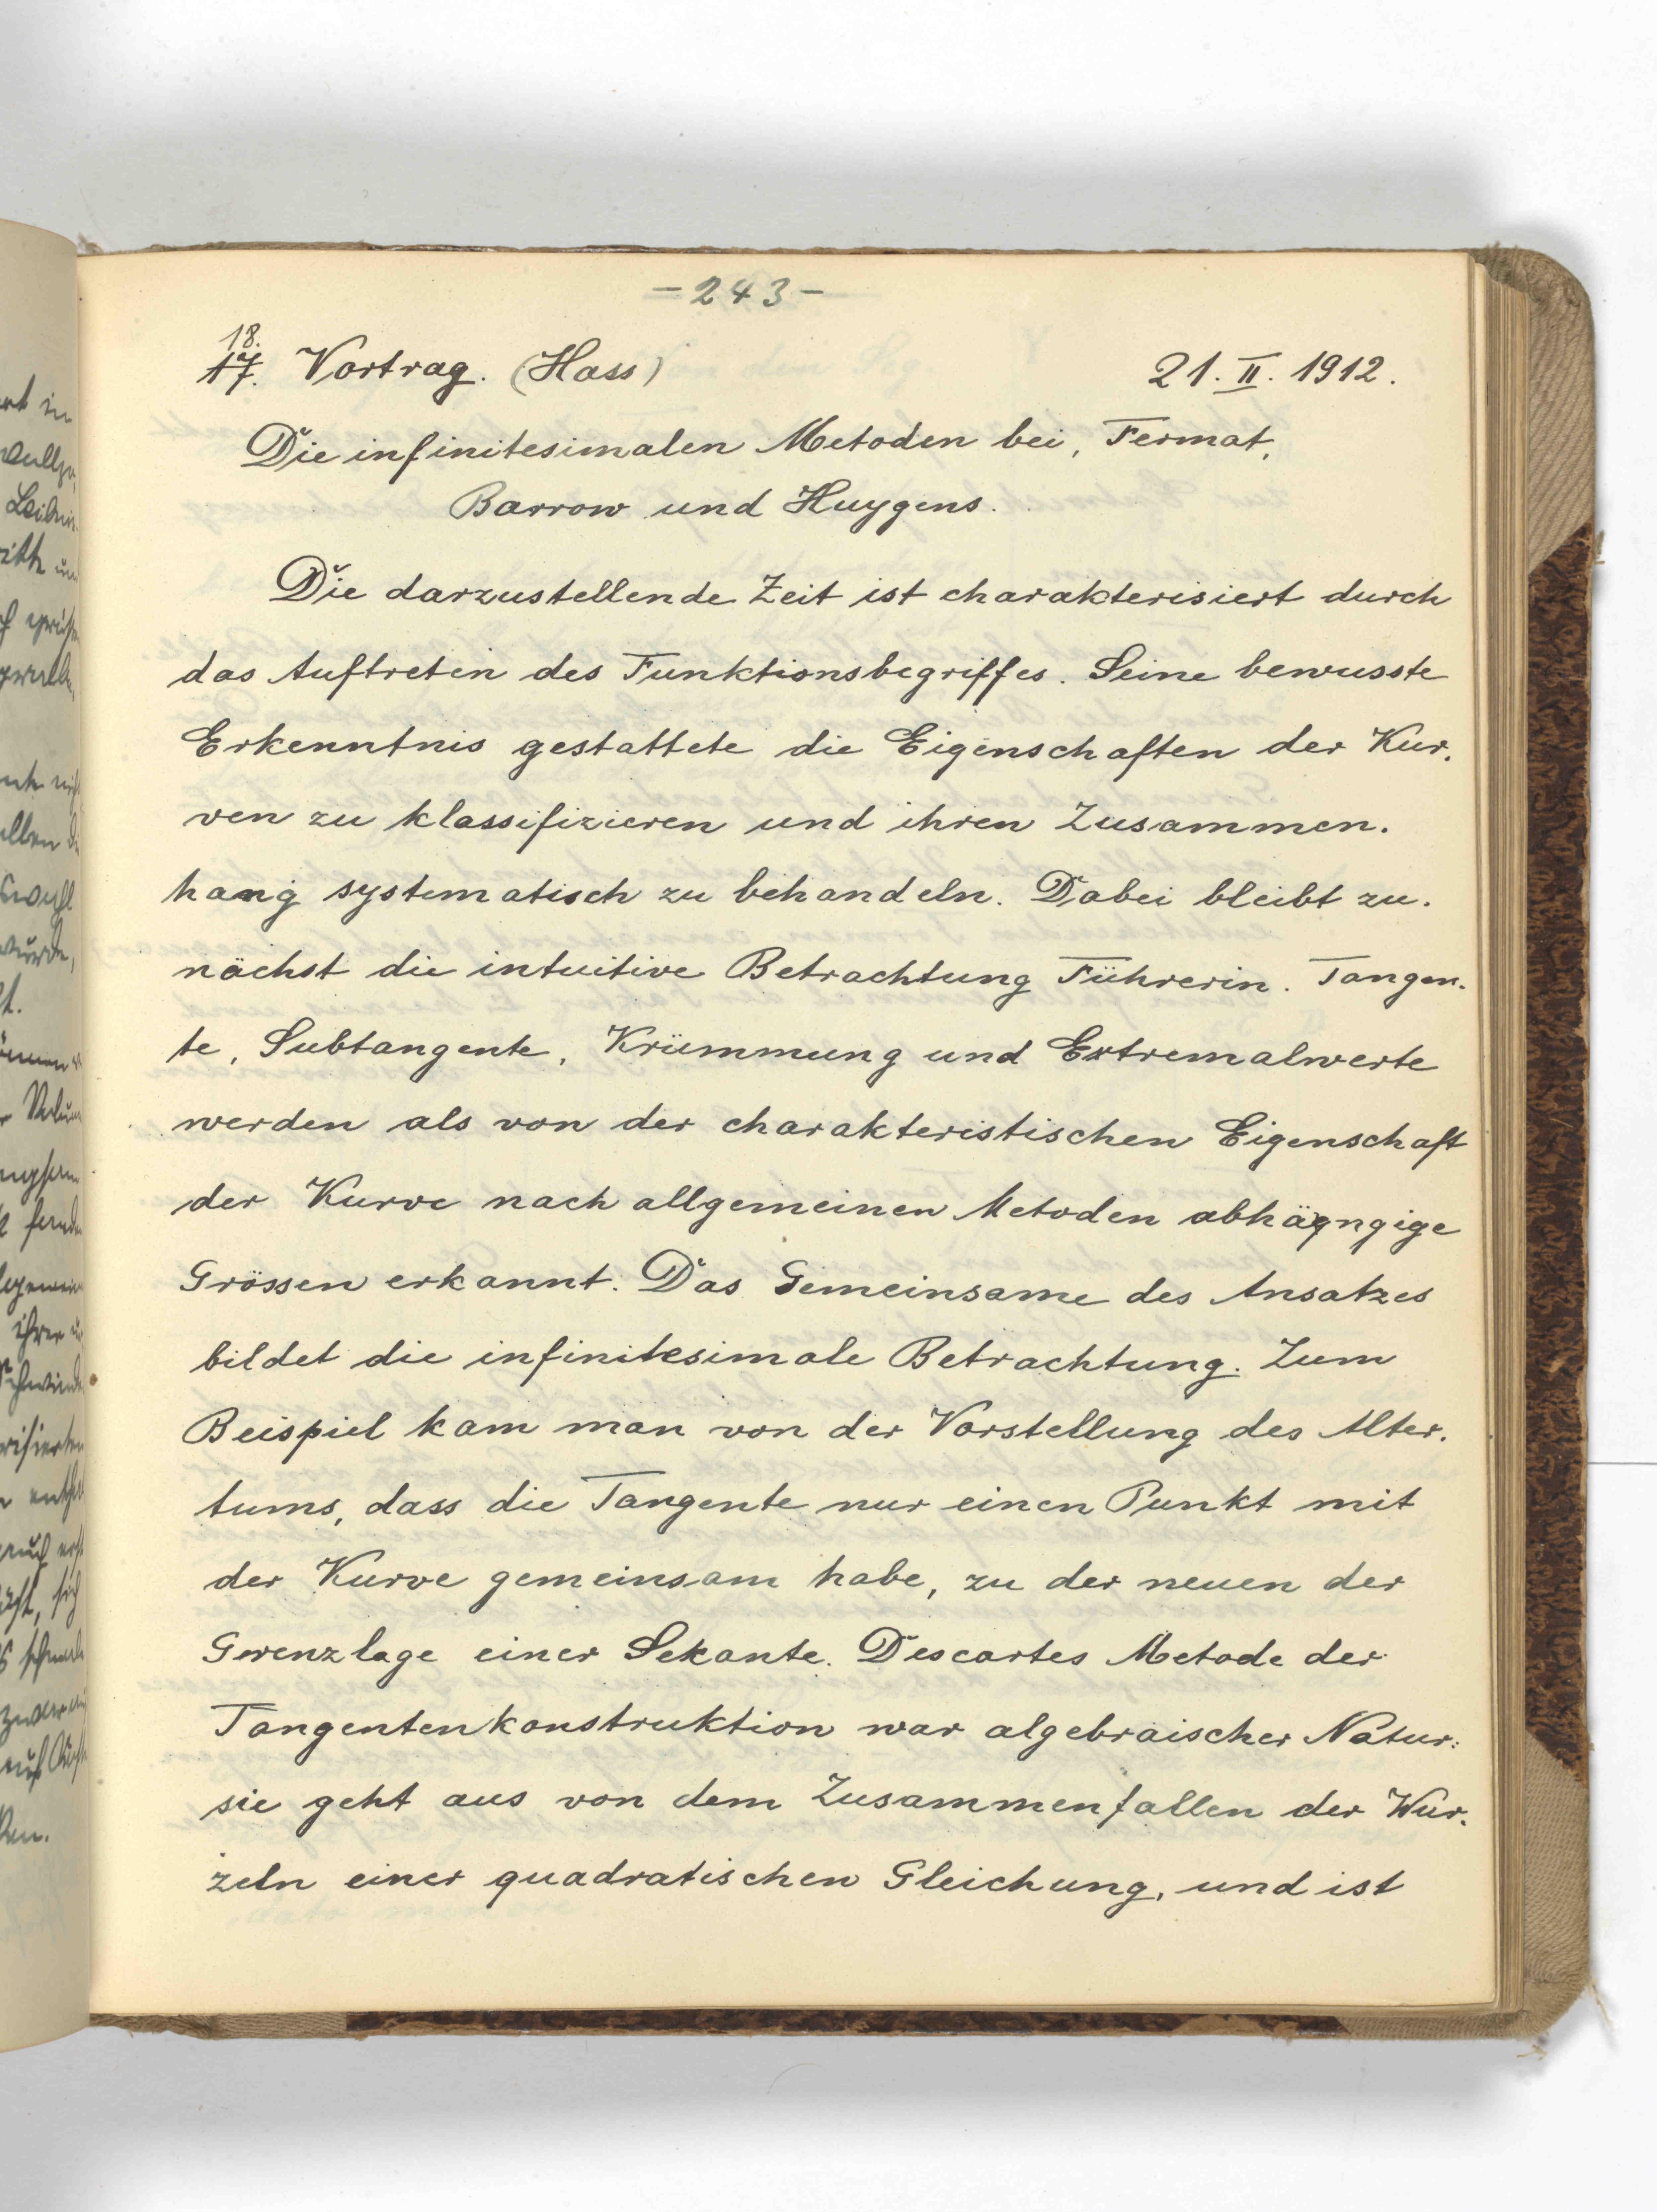 - 243 -
18.
17. Vortrag. (Hass) 21. II. 1912.
Die infinitesimalen Metoden bei, Fermat,
Barrow und Huygens.
Die darzustellende Zeit ist charakterisiert durch
das Auftreten des Funktionsbegriffes. Seine bewusste
Erkenntnis gestattete die Eigenschaften der Kur-
ven zu klassifizieren und ihren Zusammen-
hang systematisch zu behandeln. Dabei bleibt zu-
nächst die intuitive Betrachtung Führerin. Tangen-
te, Subtangente, Krümmung und Extremalwerte
werden als von der charakteristischen Eigenschaft
der Kurve nach allgemeinen Metoden abhängige
Grössen erkannt. Das Gemeinsame des Ansatzes
bildet die infinitesimale Betrachtung. Zum
Beispiel kam man von der Vorstellung des Alter-
tums, dass die Tangente nur einen Punkt mit
der Kurve gemeinsam habe, zu der neuen der
Grenzlage einer Sekante. Descartes Metode der
Tangentenkonstruktion war algebraischer Natur:
sie geht aus von dem Zusammenfallen der Wur-
zeln einer quadratischen Gleichung, und ist